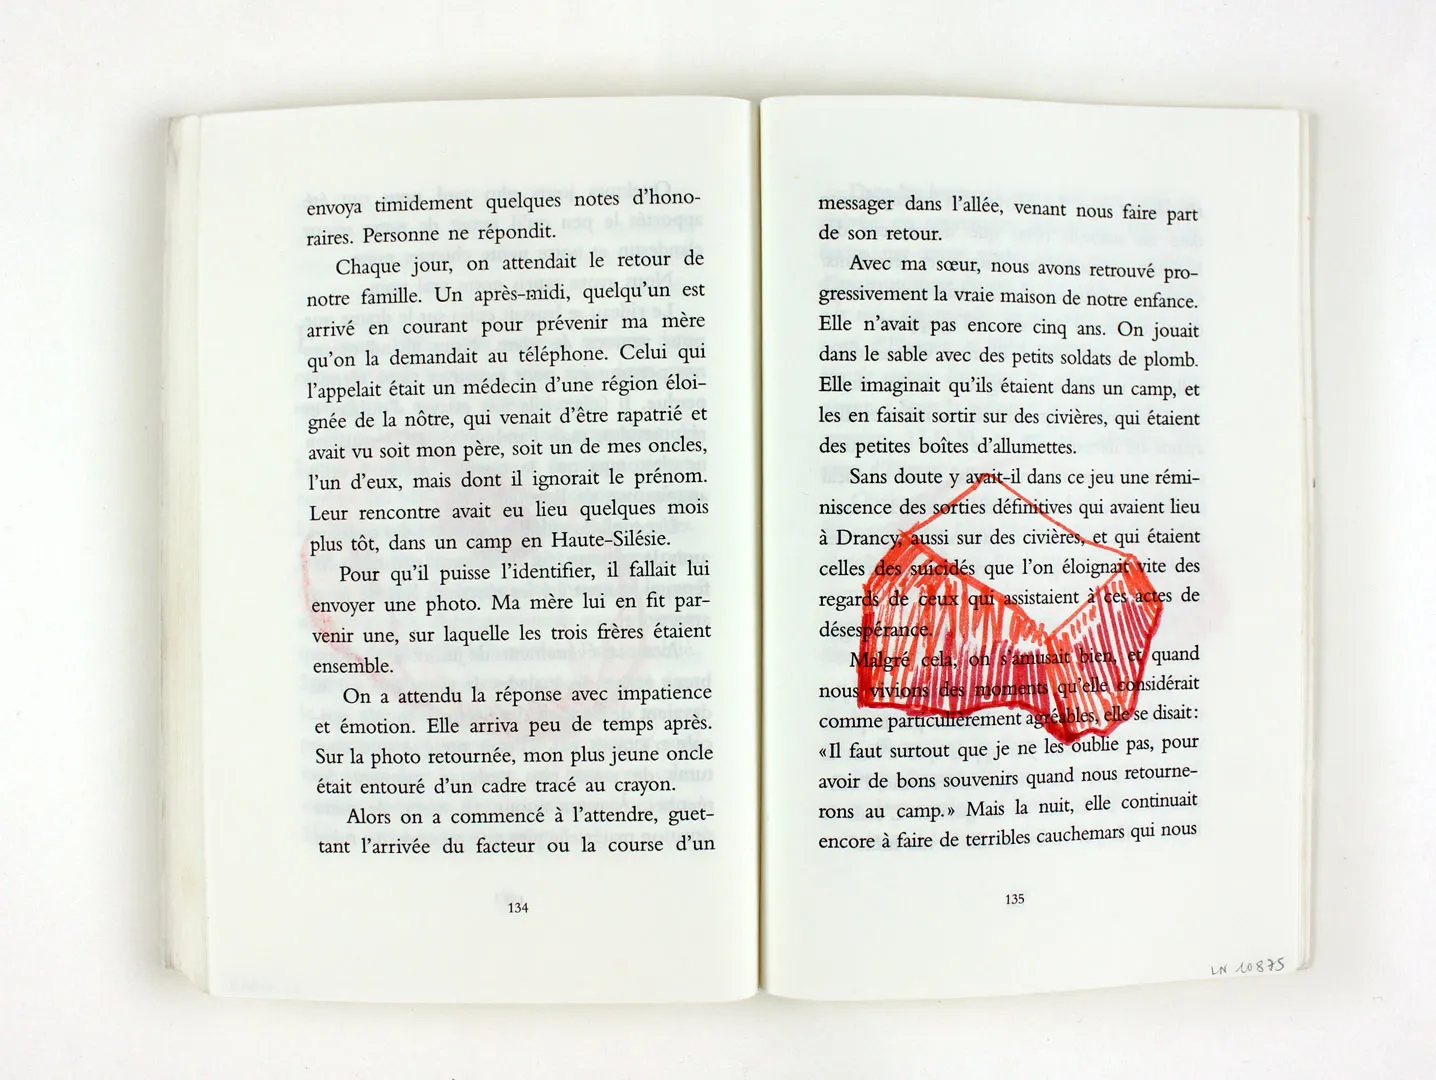 envoya timidement quelques notes d'hono-
raires. Personne ne répondit.
Chaque jour, on attendait le retour de
notre famille. Un après-midi, quelqu'un est
arrivé en courant pour prévenir ma mère
qu'on la demandait au téléphone. Celui qui
l'appelait était un médecin d'une région éloi-
gnée de la nôtre, qui venait d'être rapatrié et
avait vu soit mon père, soit un de mes oncles,
l'un d'eux, mais dont il ignorait le prénom.
Leur rencontre avait eu lieu quelques mois
plus tôt, dans un camp en Haute-Silésie.
Pour qu'il puisse l'identifier, il fallait lui
envoyer une photo. Ma mère lui en fit par-
venir une, sur laquelle les trois frères étaient
ensemble.
On a attendu la réponse avec impatience
et émotion. Elle arriva peu de temps après.
Sur la photo retournée, mon plus jeune oncle
était entouré d'un cadre tracé au crayon.
Alors on a commencé à l'attendre, guet-
tant l'arrivée du facteur ou la course d'un
134
messager dans l'allée, venant nous faire part
de son retour.
Avec ma sœur, nous avons retrouvé pro-
gressivement la vraie maison de notre enfance.
Elle n'avait pas encore cinq ans. On jouait
dans le sable avec des petits soldats de plomb.
Elle imaginait qu'ils étaient dans un camp, et
les en faisait sortir sur des civières, qui étaient
des petites boîtes d'allumettes.
Sans doute y avait-il dans ce jeu une rémi-
niscence des sorties définitives qui avaient lieu
à Drancy, aussi sur des civières, et qui étaient
celles des suicidés que l'on éloignait vite des
regards de ceux qui assistaient à ces actes de
désespérance.
Malgré cela, on s'amusait bien, et quand
nous vivions des moments qu'elle considérait
comme particulièrement agréables, elle se disait :
«Il faut surtout que je ne les oublie pas, pour
avoir de bons souvenirs quand nous retourne-
rons au camp.» Mais la nuit, elle continuait
encore à faire de terribles cauchemars qui nous
135
LN 10875